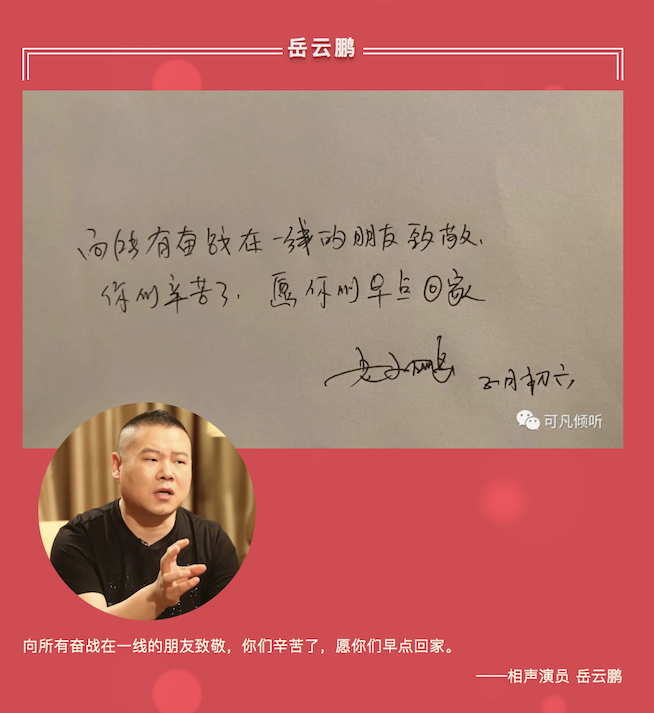 岳云鹏
向所有奋战在一线的朋友致敬.
你们辛苦了.愿你们早点回家
岳云鹏 正月初六
可凡倾听
向所有奋战在一线的朋友致敬，你们辛苦了，愿你们早点回家。
——相声演员 岳云鹏